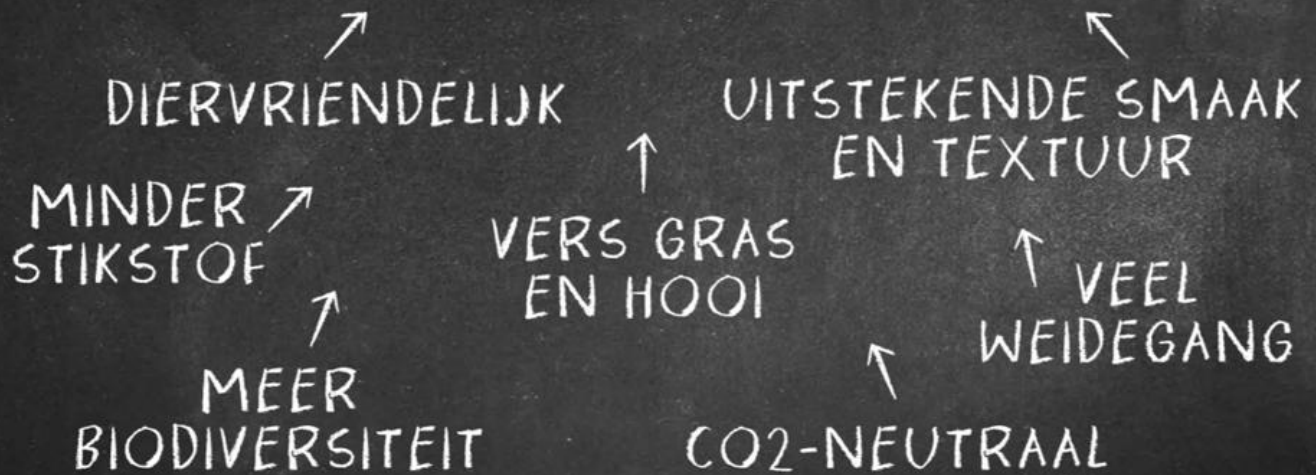 DIERVRIENDELIJK
UITSTEKENDE SMAAK
EN TEXTUUR
MINDER
STIKSTOF
VERS GRAS
EN HOOI
VEEL
WEIDEGANG
MEER
BIODIVERSITEIT
CO2-NEUTRAAL